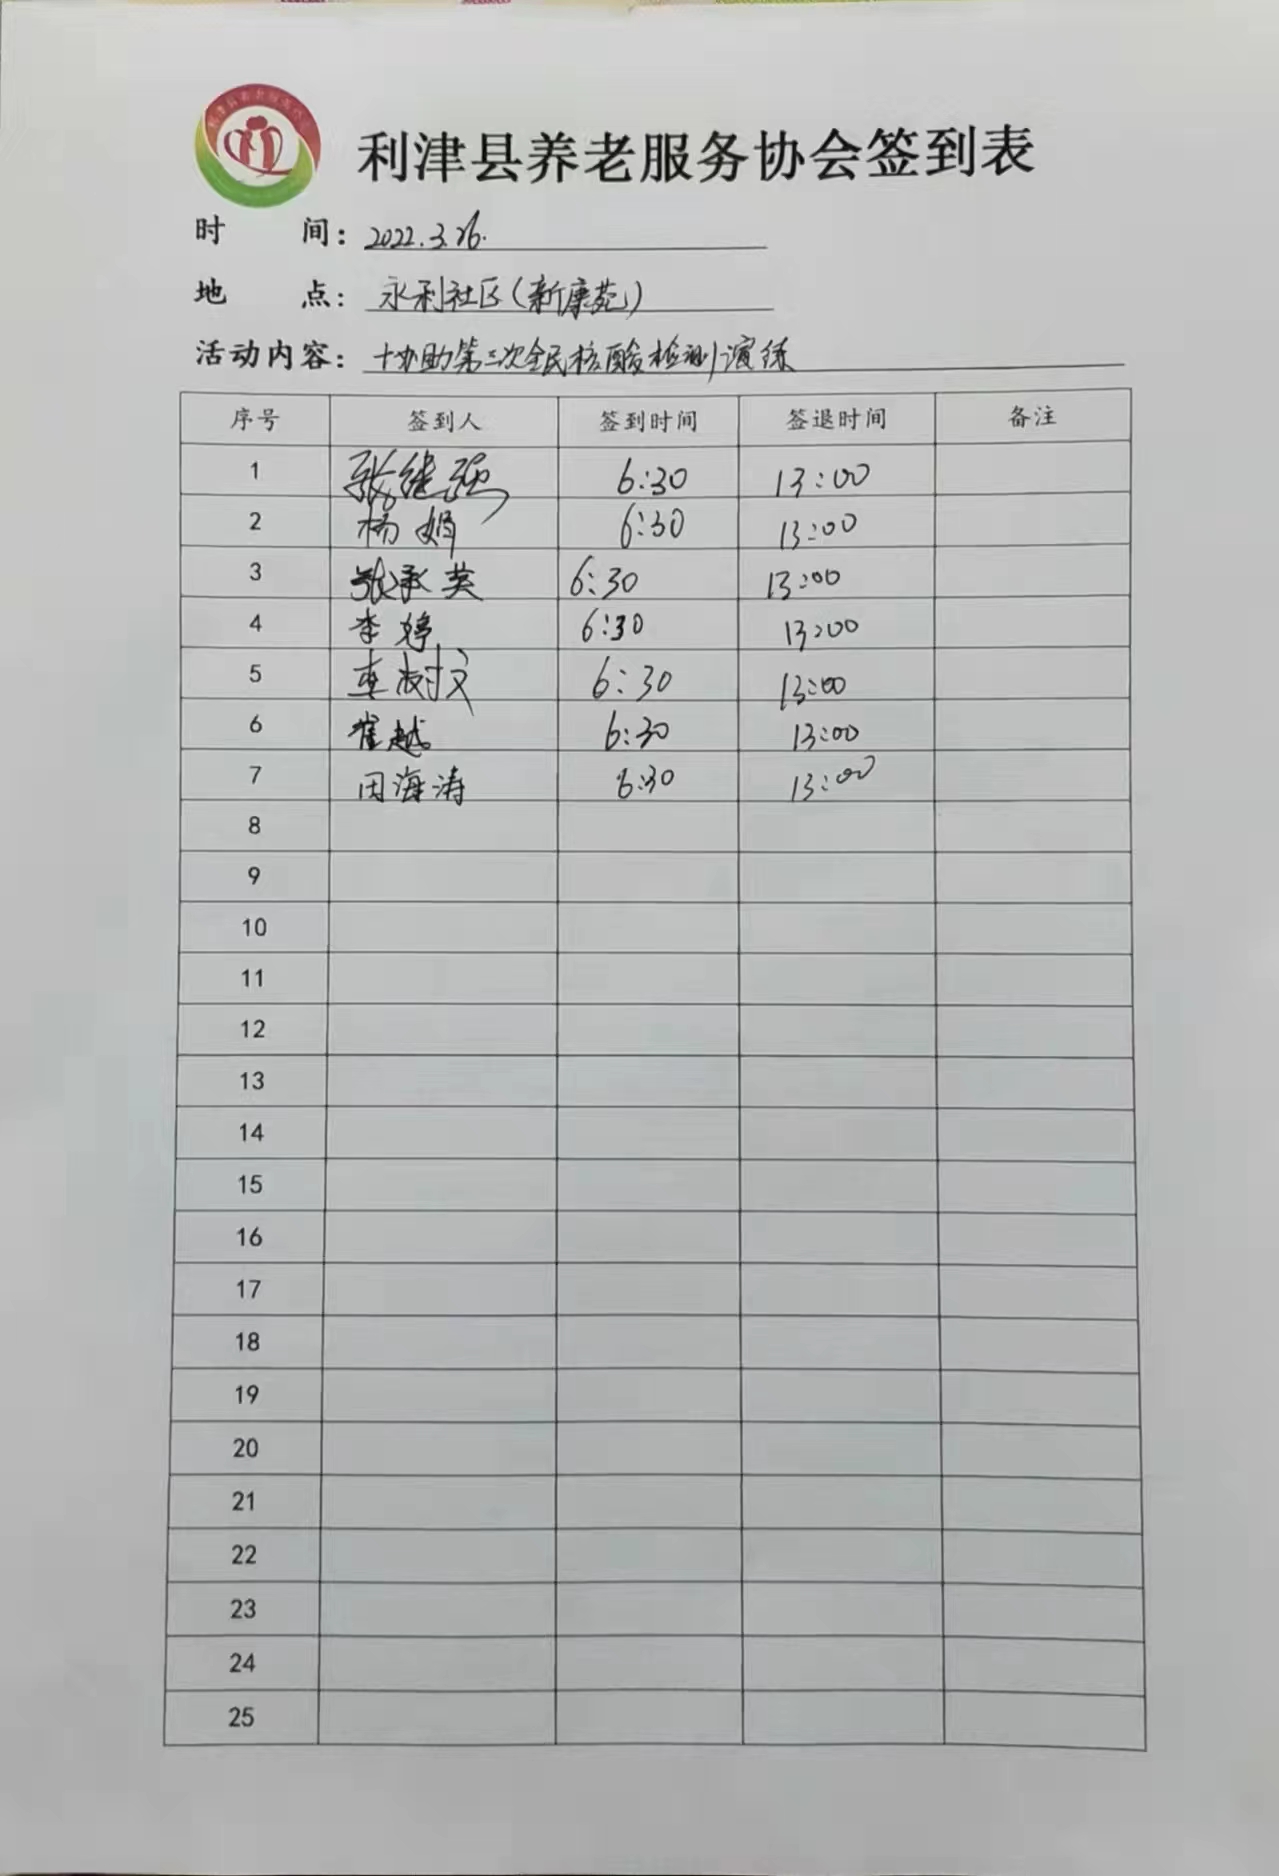 利津县养老服务协会签到表
时 间： 2022.3.26.
地 点： 永利社区(新康苑)
活动内容： 协助第三次全民核酸检测演练
序号 签到人 签到时间 签退时间 备注
1 张继强 6:30 13:00
2 杨娟 6:30 13:00
3 张承英 6:30 13:00
4 李婷 6:30 13:00
5 车树文 6:30 13:00
6 崔越 6:30 13:00
7 田海涛 6:30 13:00
8
9
10
11
12
13
14
15
16
17
18
19
20
21
22
23
24
25